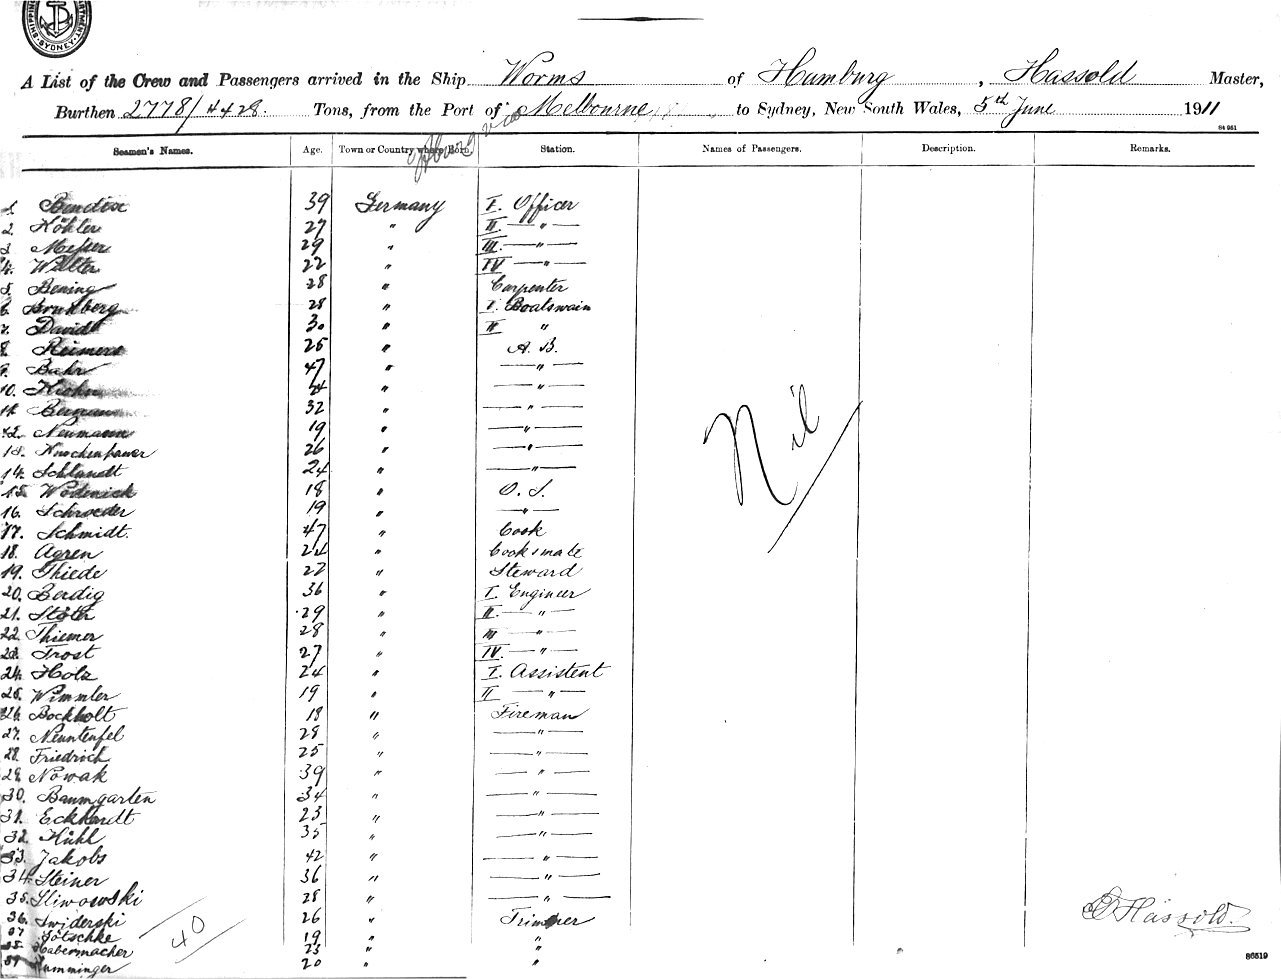 SHIPPING DEPARTMENT SYDNEY
A List of the Crew and Passengers arrived in the Ship Worms of Hamburg, Hassold Master,
Burthen 2778/4428. Tons, from the Port of Melbourne to Sydney, New South Wales, 5th June 1911
St 951
via
Seamen's Names. Age. Town or Country where Born. Station. Names of Passengers. Description. Remarks.
1. 39 Germany I. Officer
2. Köhler 27 " II. — " —
3. 29 " III. — " —
4. Walter 22 " IV — " —
5. Bening 28 " Carpenter
6. 28 " I. Boatswain
7. David 30 " II "
8. Reimers 25 " A. B.
9. Bahr 47 " — " —
10. Krohn 24 " — " —
11. 32 " — " —
12. Neumann 19 " — " —
13. Knochenhauer 26 " — " —
14. Schlandt 24 " — " —
15. 18 " O. S.
16. Schroeder 19 " — " —
17. Schmidt. 47 " Cook
18. Agren 24 " Cooksmate
19. Thiede 22 " Steward
20. Berdig 36 " I. Engineer
21. Stöter 29 " II. — " —
22. Thiemer 28 " III — " —
23. Trost 27 " IV. — " —
24. Holz 24 " I. Assistent
25. Wimmler 19 " II — " —
26. Bockholt 18 " Fireman
27. Neunteufel 28 " — " —
28. Friedrich 25 " — " —
29. Nowak 39 " — " —
30. Baumgarten 34 " — " —
31. Eckhardt 23 " — " —
32. Kühl 35 " — " —
33. Jakobs 42 " — " —
34. Steiner 36 " — " —
35. Sliwowski 28 " — " —
36. Swiderski 26 " Trimmer
37 Götschke 19 " "
38. Habermacher 23 " "
39 20 " "
Nil
40
Hassold.
86519